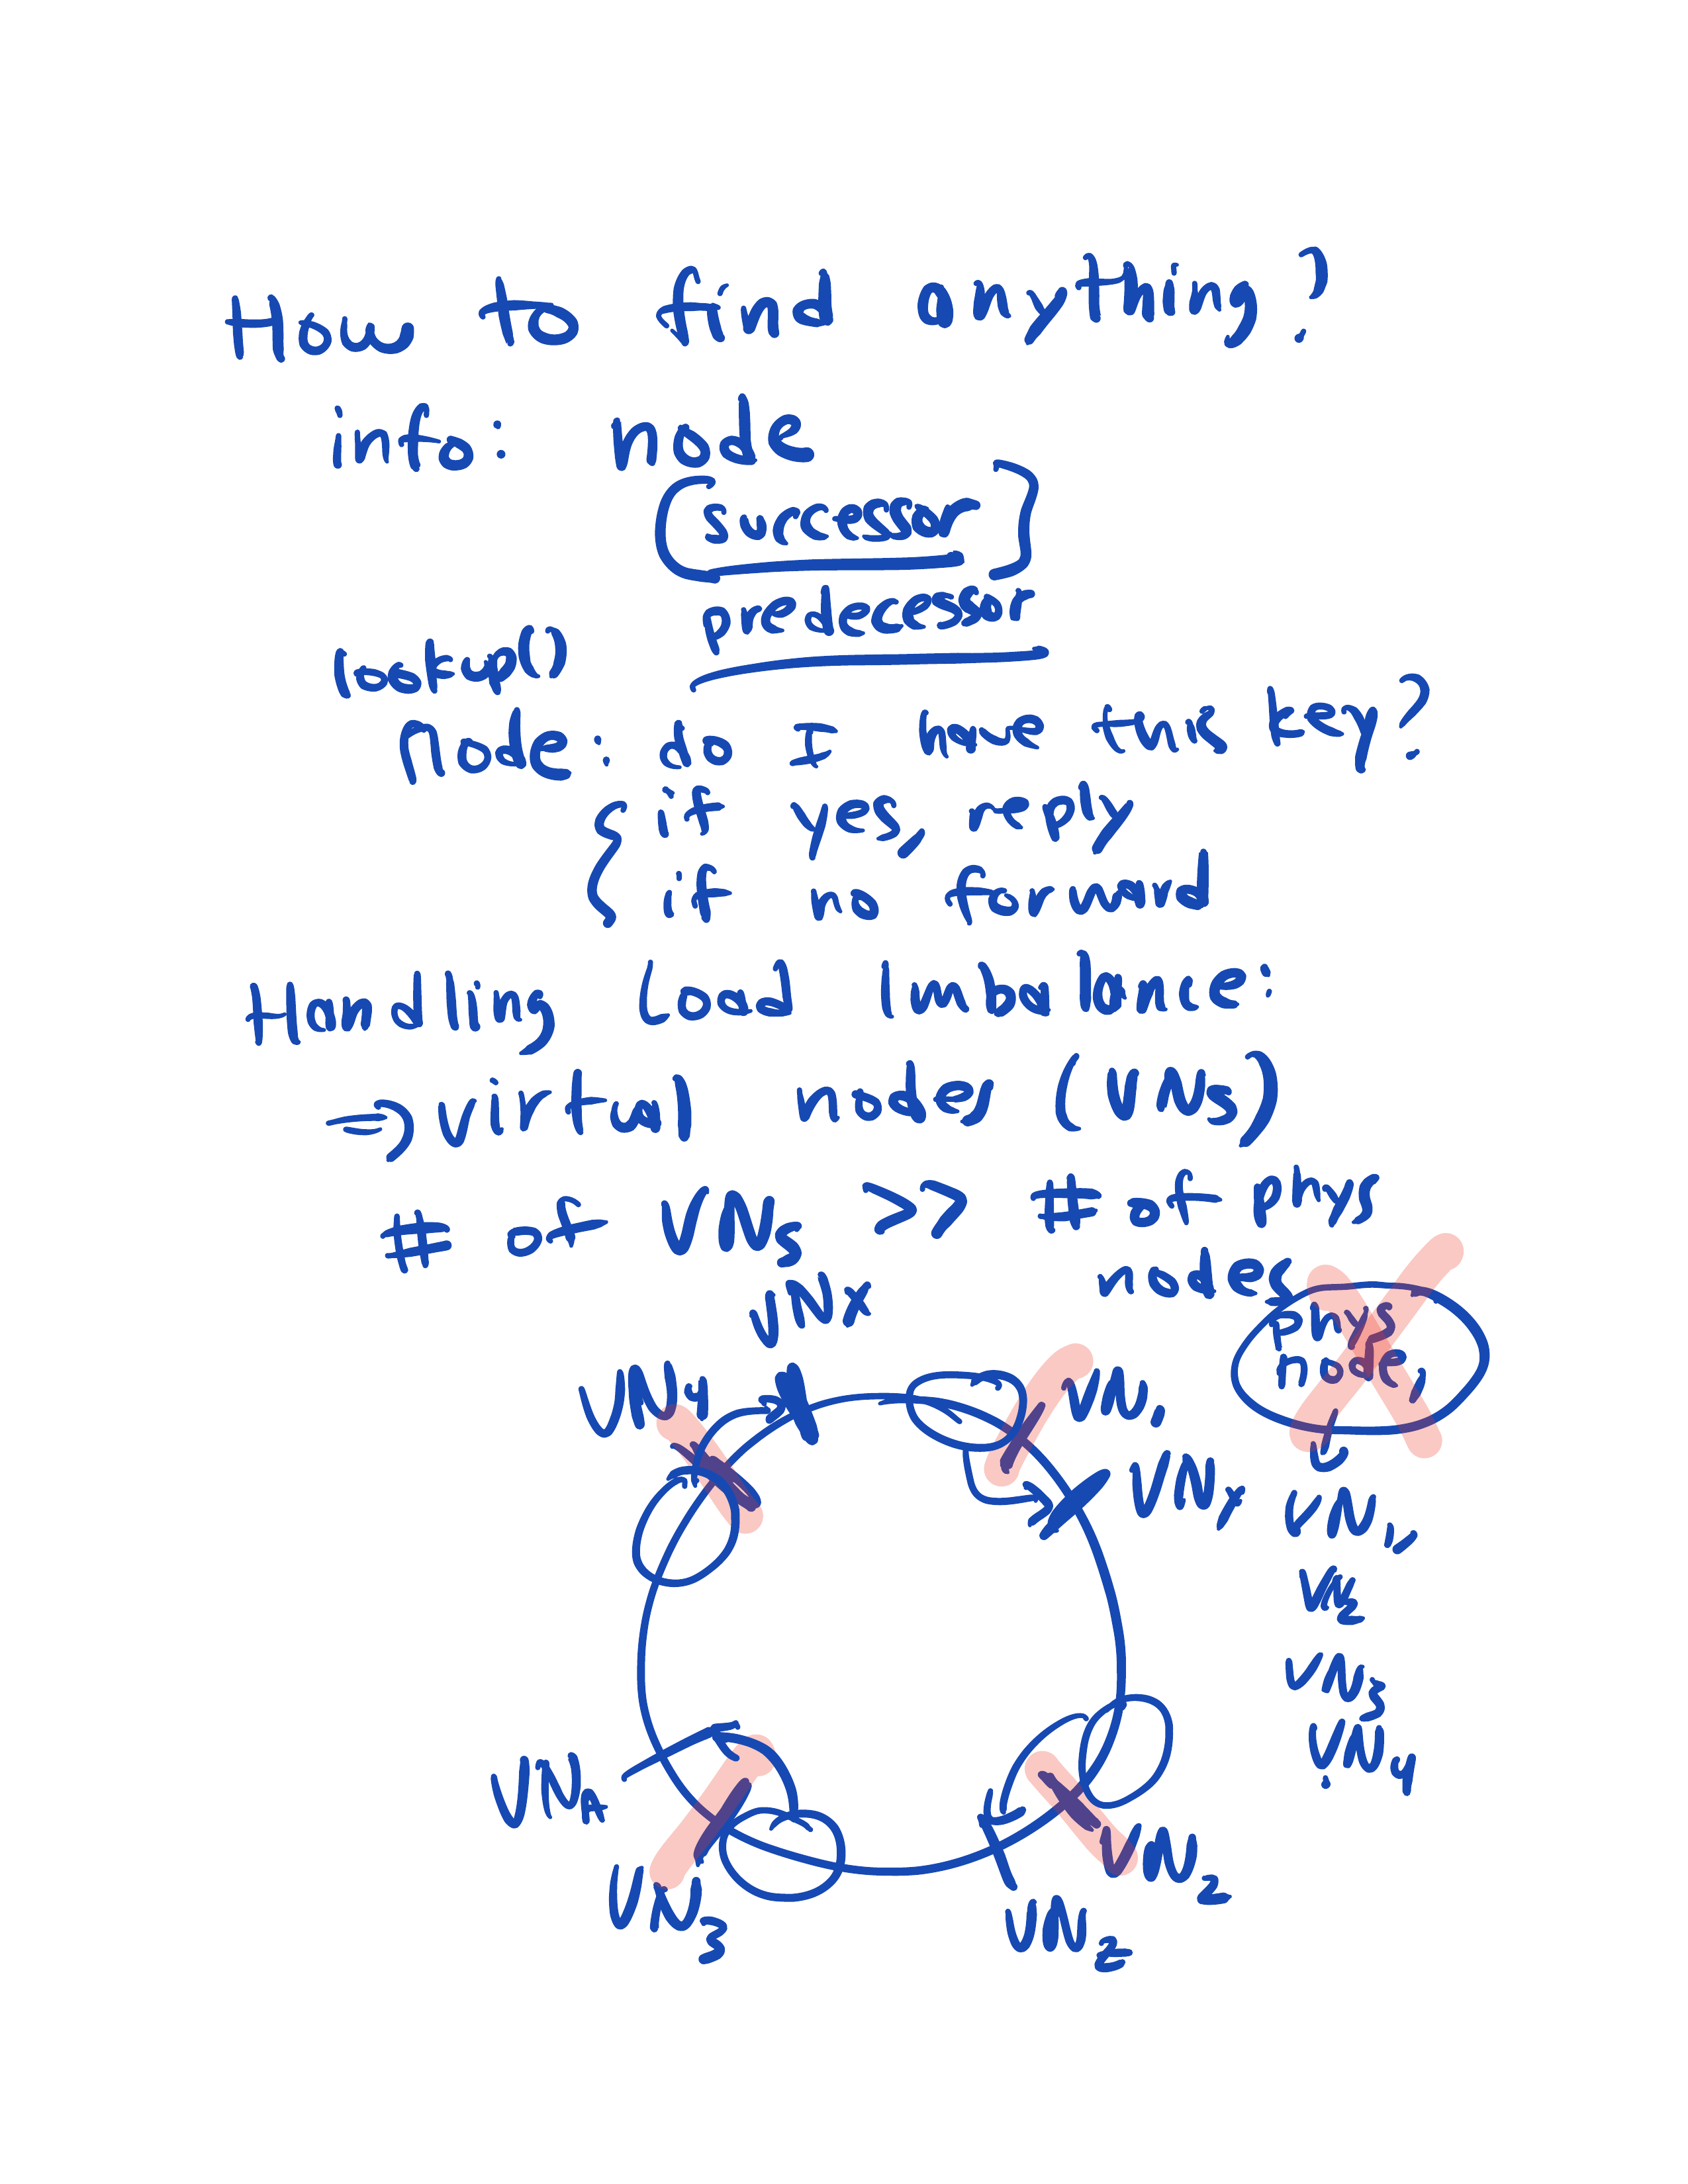 How to find anything?
info: node
(successor)
predecessor
lookup()
Node: do I have this key?
{ if yes, reply
if no forward
Handling Load Imbalance:
⇒ virtual nodes (VNs)
# of VNs >> # of phys
nodes
phys
node,
VNx
VN4
VN1
VNx
VN1,
VN2
VN3
VN4
VNA
VN3
VN2
VNz